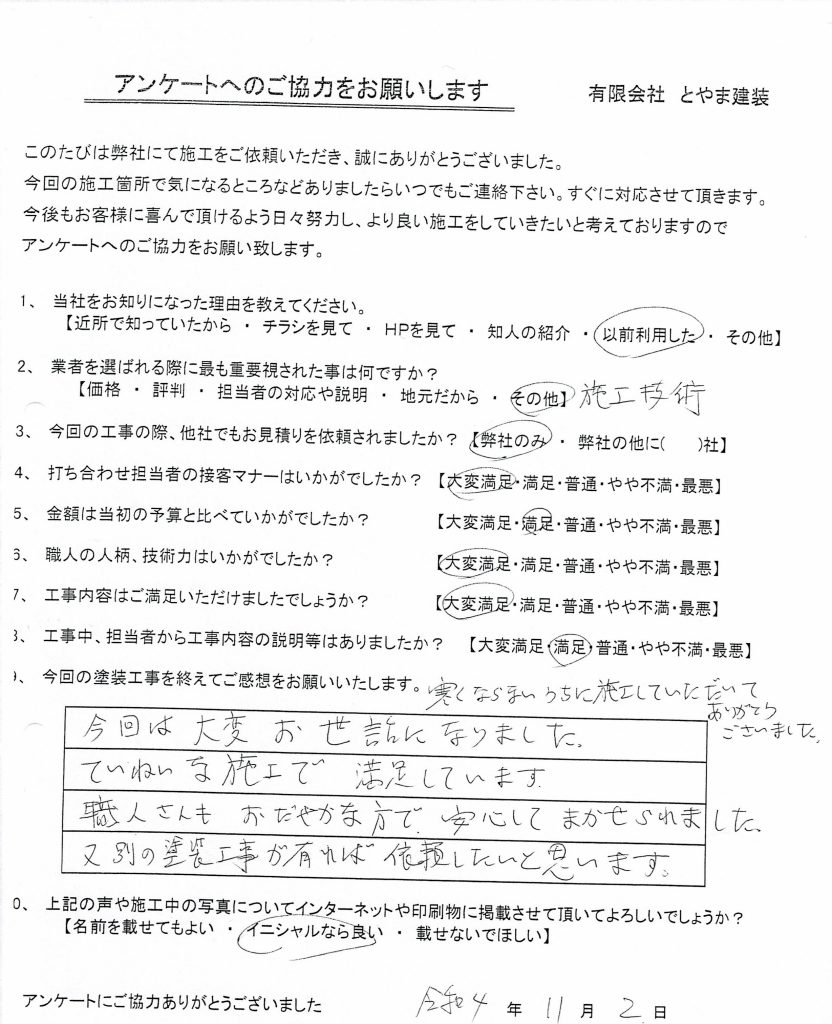 アンケートへのご協力をお願いします　有限会社　とやま建装
このたびは弊社にて施工をご依頼いただき、誠にありがとうございました。
今回の施工箇所で気になるところなどありましたらいつでもご連絡下さい。すぐに対応させて頂きます。
今後もお客様に喜んで頂けるよう日々努力し、より良い施工をしていきたいと考えておりますので
アンケートへのご協力をお願い致します。
1、 当社をお知りになった理由を教えてください。
【近所で知っていたから ・ チラシを見て ・ HPを見て ・ 知人の紹介 ・ 以前利用した ・ その他】
2、 業者を選ばれる際に最も重要視された事は何ですか？
【価格 ・ 評判 ・ 担当者の対応や説明 ・ 地元だから ・ その他】 施工技術
3、 今回の工事の際、他社でもお見積りを依頼されましたか？ 【弊社のみ ・ 弊社の他に(　　)社】
4、 打ち合わせ担当者の接客マナーはいかがでしたか？ 【大変満足・満足・普通・やや不満・最悪】
5、 金額は当初の予算と比べていかがでしたか？ 【大変満足・満足・普通・やや不満・最悪】
6、 職人の人柄、技術力はいかがでしたか？ 【大変満足・満足・普通・やや不満・最悪】
7、 工事内容はご満足いただけましたでしょうか？ 【大変満足・満足・普通・やや不満・最悪】
8、 工事中、担当者から工事内容の説明等はありましたか？ 【大変満足・満足・普通・やや不満・最悪】
9、 今回の塗装工事を終えてご感想をお願いいたします。 寒くならないうちに施工していただいて
ありがとう
ございました。
今回は大変お世話になりました。
ていねいな施工で 満足しています
職人さんも おだやかな方で 安心して まかせられました。
又別の塗装工事が有れば 依頼したいと思います。
0、 上記の声や施工中の写真についてインターネットや印刷物に掲載させて頂いてよろしいでしょうか？
【名前を載せてもよい ・ イニシャルなら良い ・ 載せないでほしい】
アンケートにご協力ありがとうございました　令和4 年 11 月 2 日